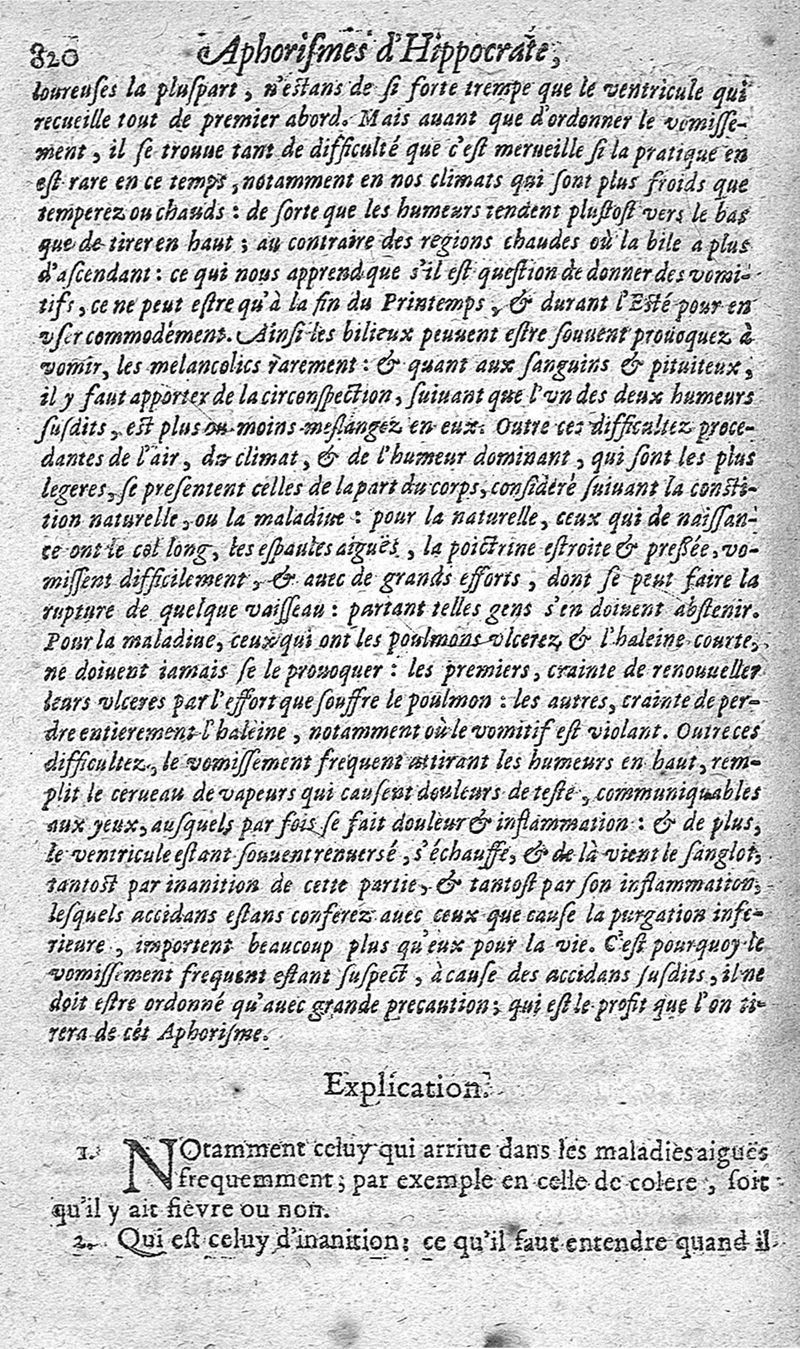 820 Aphorismes d'Hippocrate,
loureuses la pluspart, n'estans de si forte trempe que le ventricule qui
recueille tout de premier abord. Mais auant que d'ordonner le vomisse-
ment, il se trouue tant de difficulté que c'est merueille si la pratique en
est rare en ce temps, notamment en nos climats qui sont plus froids que
temperez ou chauds : de sorte que les humeurs tendent plustost vers le bas
que de tirer en haut ; au contraire des regions chaudes où la bile a plus
d'ascendant : ce qui nous apprend que s'il est question de donner des vomi-
tifs, ce ne peut estre qu'à la fin du Printemps, & durant l'Esté pour en
vser commodément. Ainsi les bilieux peuuent estre souuent prouoquez à
vomir, les melancolics rarement : & quant aux sanguins & pituiteux,
il y faut apporter de la circonspection, suiuant que l'vn des deux humeurs
susdits, est plus ou moins meslangez en eux. Outre ces difficultez proce-
dantes de l'air, du climat, & de l'humeur dominant, qui sont les plus
legeres, se presentent celles de la part du corps, consideré suiuant la consti-
tion naturelle, ou la maladiue : pour la naturelle, ceux qui de naissan-
ce ont le col long, les espaules aiguës, la poictrine estroite & pressée, vo-
missent difficilement, & auec de grands efforts, dont se peut faire la
rupture de quelque vaisseau : partant telles gens s'en doiuent abstenir.
Pour la maladiue, ceux qui ont les poulmons vlcerez & l'haleine courte,
ne doiuent iamais se le prouoquer : les premiers, crainte de renouueller
leurs vlceres par l'effort que souffre le poulmon : les autres, crainte de per-
dre entierement l'haleine, notamment où le vomitif est violant. Outre ces
difficultez, le vomissement frequent attirant les humeurs en haut, rem-
plit le cerueau de vapeurs qui causent douleurs de teste, communiquables
aux yeux, ausquels par fois se fait douleur & inflammation : & de plus,
le ventricule estant souuent renuersé, s'échauffe, & de là vient le sanglot,
tantost par inanition de cette partie, & tantost par son inflammation,
lesquels accidans estans conferez auec ceux que cause la purgation infe-
rieure, importent beaucoup plus qu'eux pour la vie. C'est pourquoy le
vomissement frequent estant suspect, à cause des accidans susdits, il ne
doit estre ordonné qu'auec grande precaution ; qui est le profit que l'on ti-
rera de cét Aphorisme.
Explication.
1. NOtamment celuy qui arriue dans les maladies aiguës
frequemment ; par exemple en celle de colere, soit
qu'il y ait fiévre ou non.
2. Qui est celuy d'inanition : ce qu'il faut entendre quand il